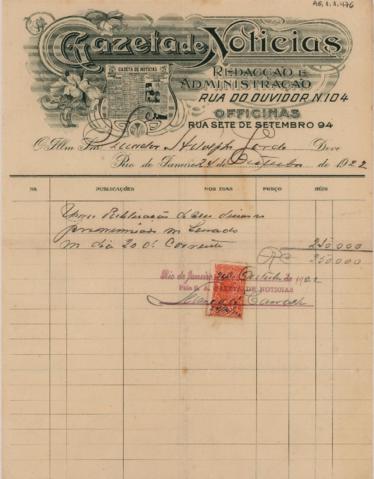 AG.1.1.476
Gazeta de Noticias
REDACÇÃO E
ADMINISTRAÇÃO
RUA DO OUVIDOR N.104
OFFICINAS
RUA SETE DE SETEMBRO 94
GAZETA DE NOTICIAS
O Illm Snr Senador Adolpho Gordo Deve
Rio de Janeiro, 24 de 1922
Nr. PUBLICAÇÕES NOS DIAS PREÇO RÉIS
Publicação de seu discurso
pronunciado no Senado
no dia 20 do Corrente 250.000
250.000
Rio de Janeiro de 1922
Pela S. A. GAZETA DE NOTICIAS